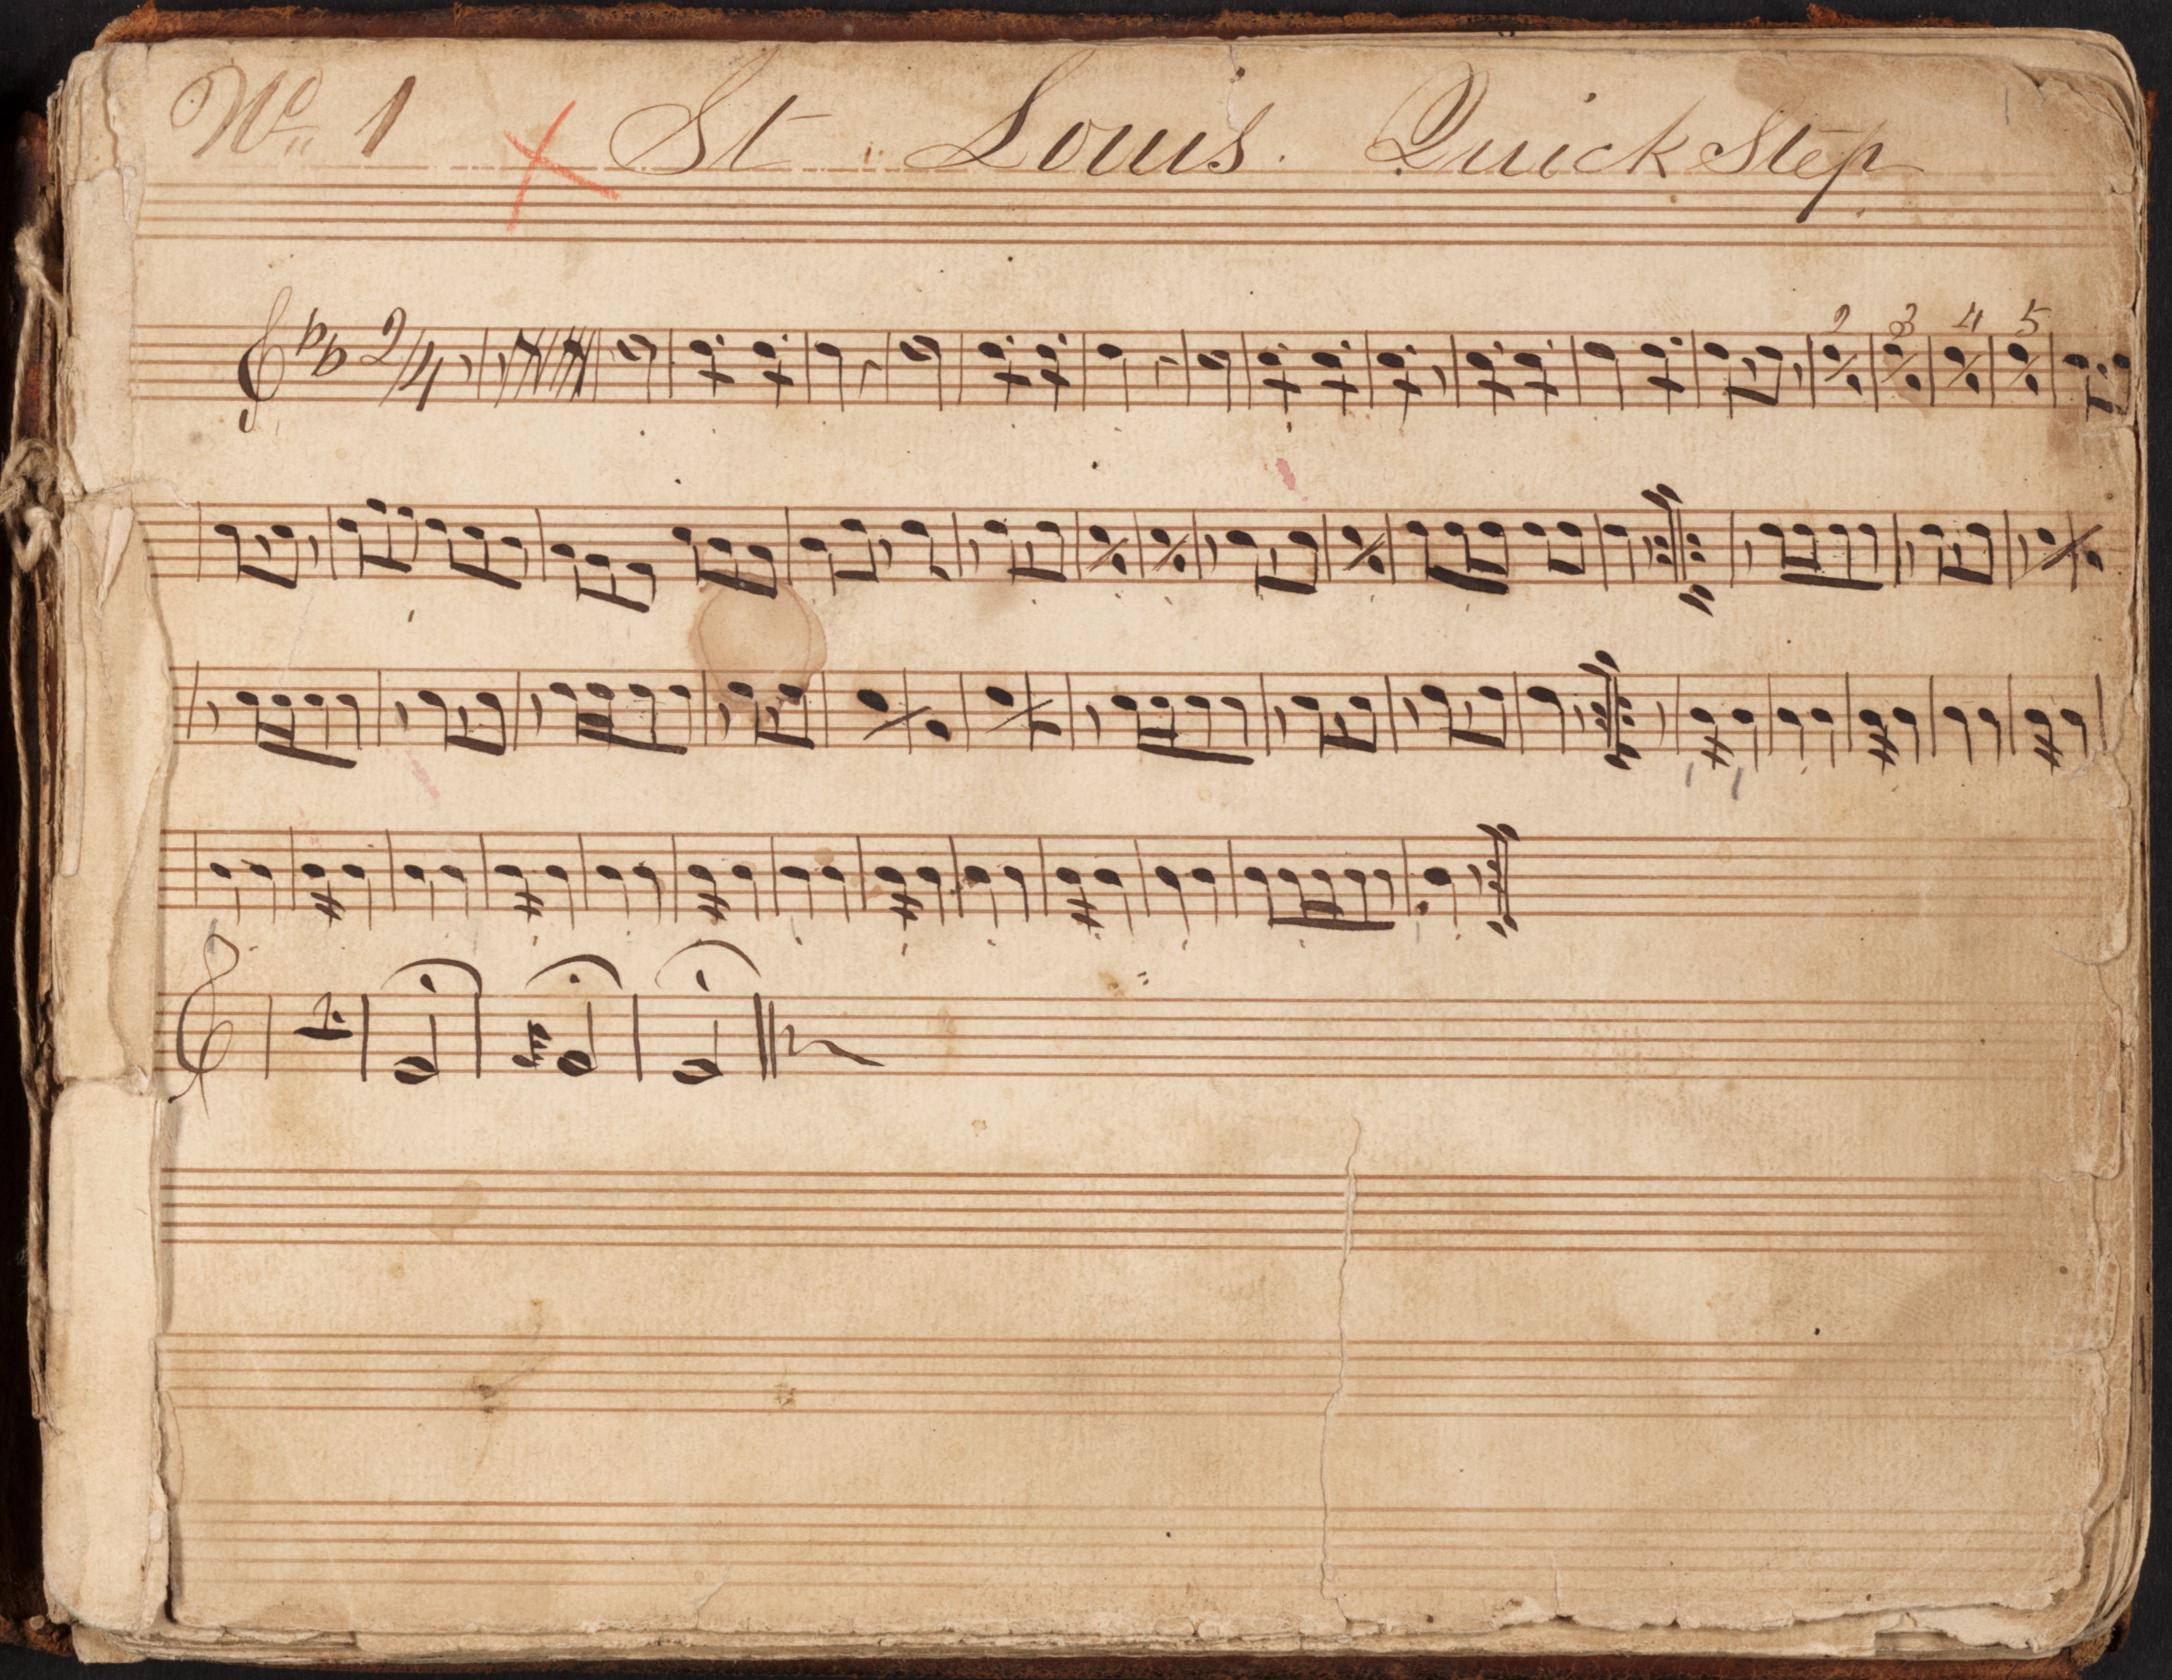 No. 1 St. Louis. Quick Step
2/4
2 3 4 5